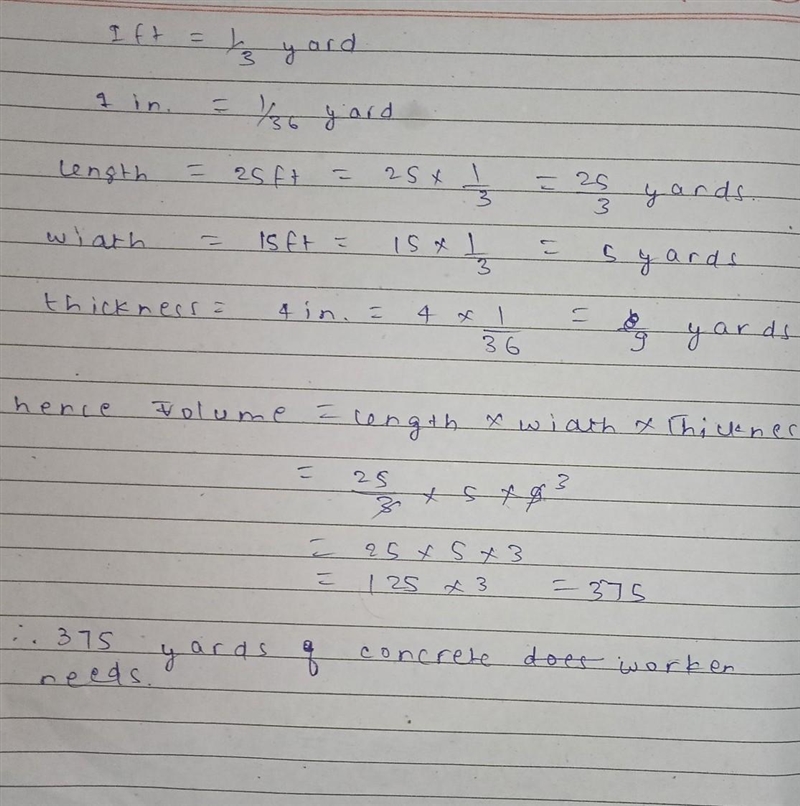 1 ft = 1/3 yard
1 in. = 1/36 yard
length = 25ft = 25 × 1/3 = 25/3 yards.
width = 15ft = 15 × 1/3 = 5 yards
thickness = 4in. = 4 × 1/36 = /9 yards
hence volume = length × width × Thicknes
= 25/3 × 5 × 9 3
= 25 × 5 × 3
= 125 × 3 = 375
∴ 375 yards of concrete does worker
needs.